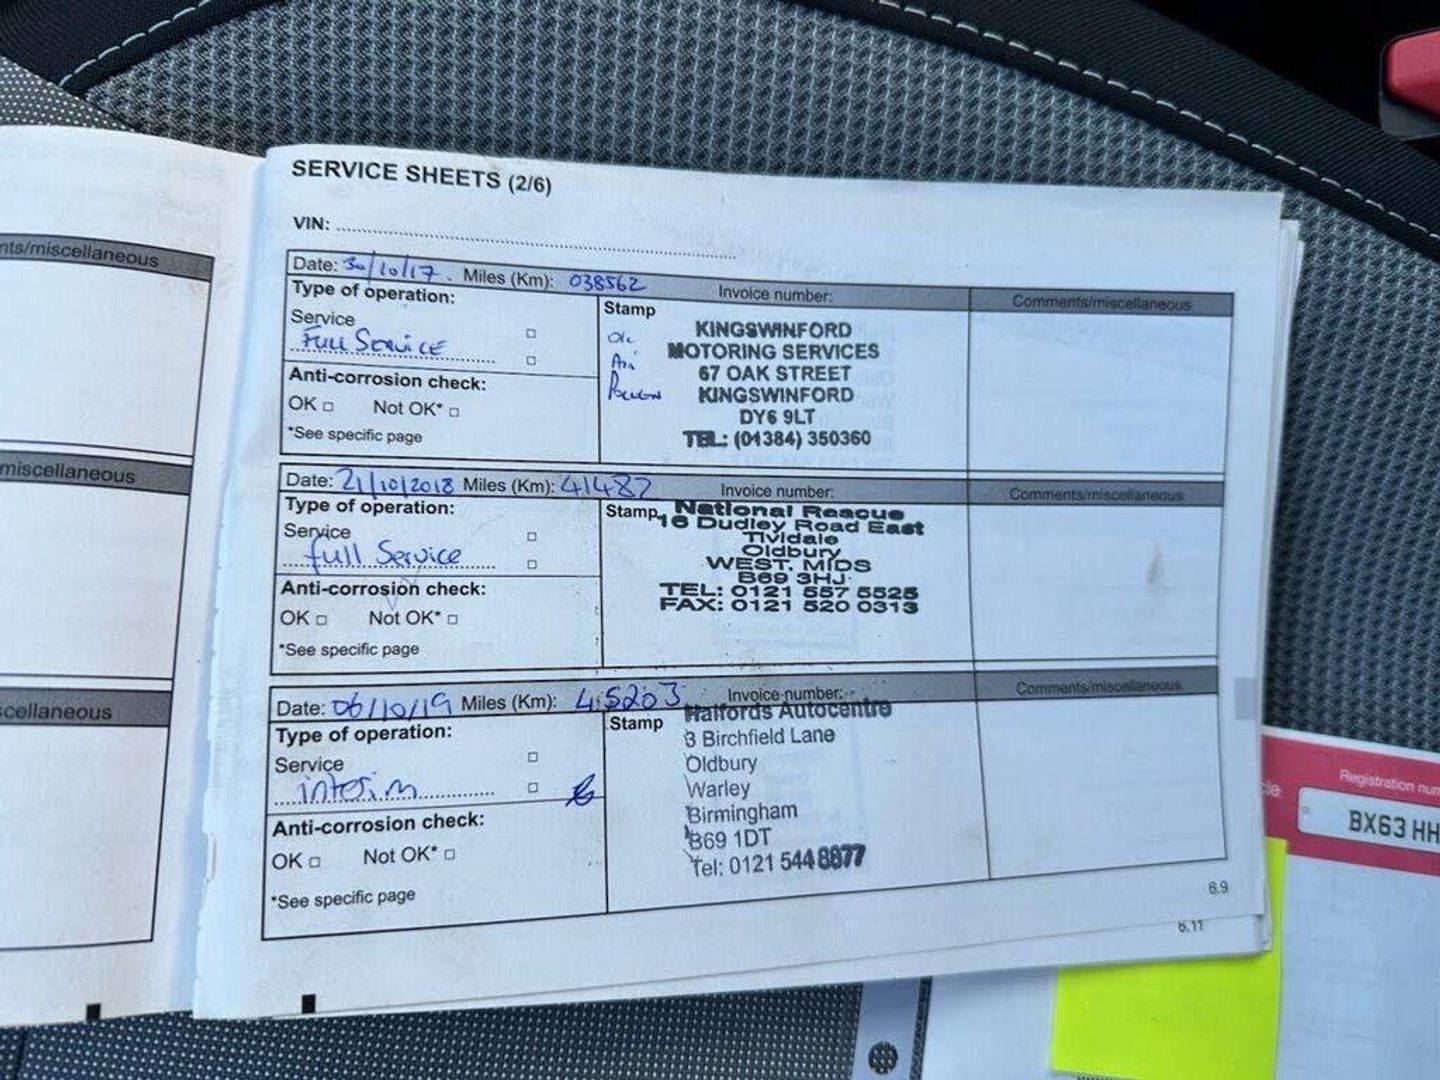 SERVICE SHEETS (2/6)
VIN:
nts/miscellaneous
Date: 30/10/17. Miles (Km): 038562 Invoice number: Comments/miscellaneous
Type of operation:
Service
Full Service
Anti-corrosion check:
OK Not OK*
*See specific page
Stamp
KINGSWINFORD
MOTORING SERVICES
67 OAK STREET
KINGSWINFORD
DY6 9LT
TEL: (01384) 350360
miscellaneous
Date: 21/10/2018 Miles (Km): 41487 Invoice number: Comments/miscellaneous
Type of operation:
Service
full Service
Anti-corrosion check:
OK Not OK*
*See specific page
Stamp
National Rescue
16 Dudley Road East
Tividale
Oldbury
WEST. MIDS
B69 3HJ
TEL: 0121 557 5525
FAX: 0121 520 0313
scellaneous
Date: 06/10/19 Miles (Km): 45203 Invoice number: Comments/miscellaneous
Type of operation:
Service
interim
Anti-corrosion check:
OK Not OK*
*See specific page
Stamp
Halfords Autocentre
3 Birchfield Lane
Oldbury
Warley
Birmingham
B69 1DT
Tel: 0121 544 8877
6.9
6.11
cle
Registration num
BX63 HH